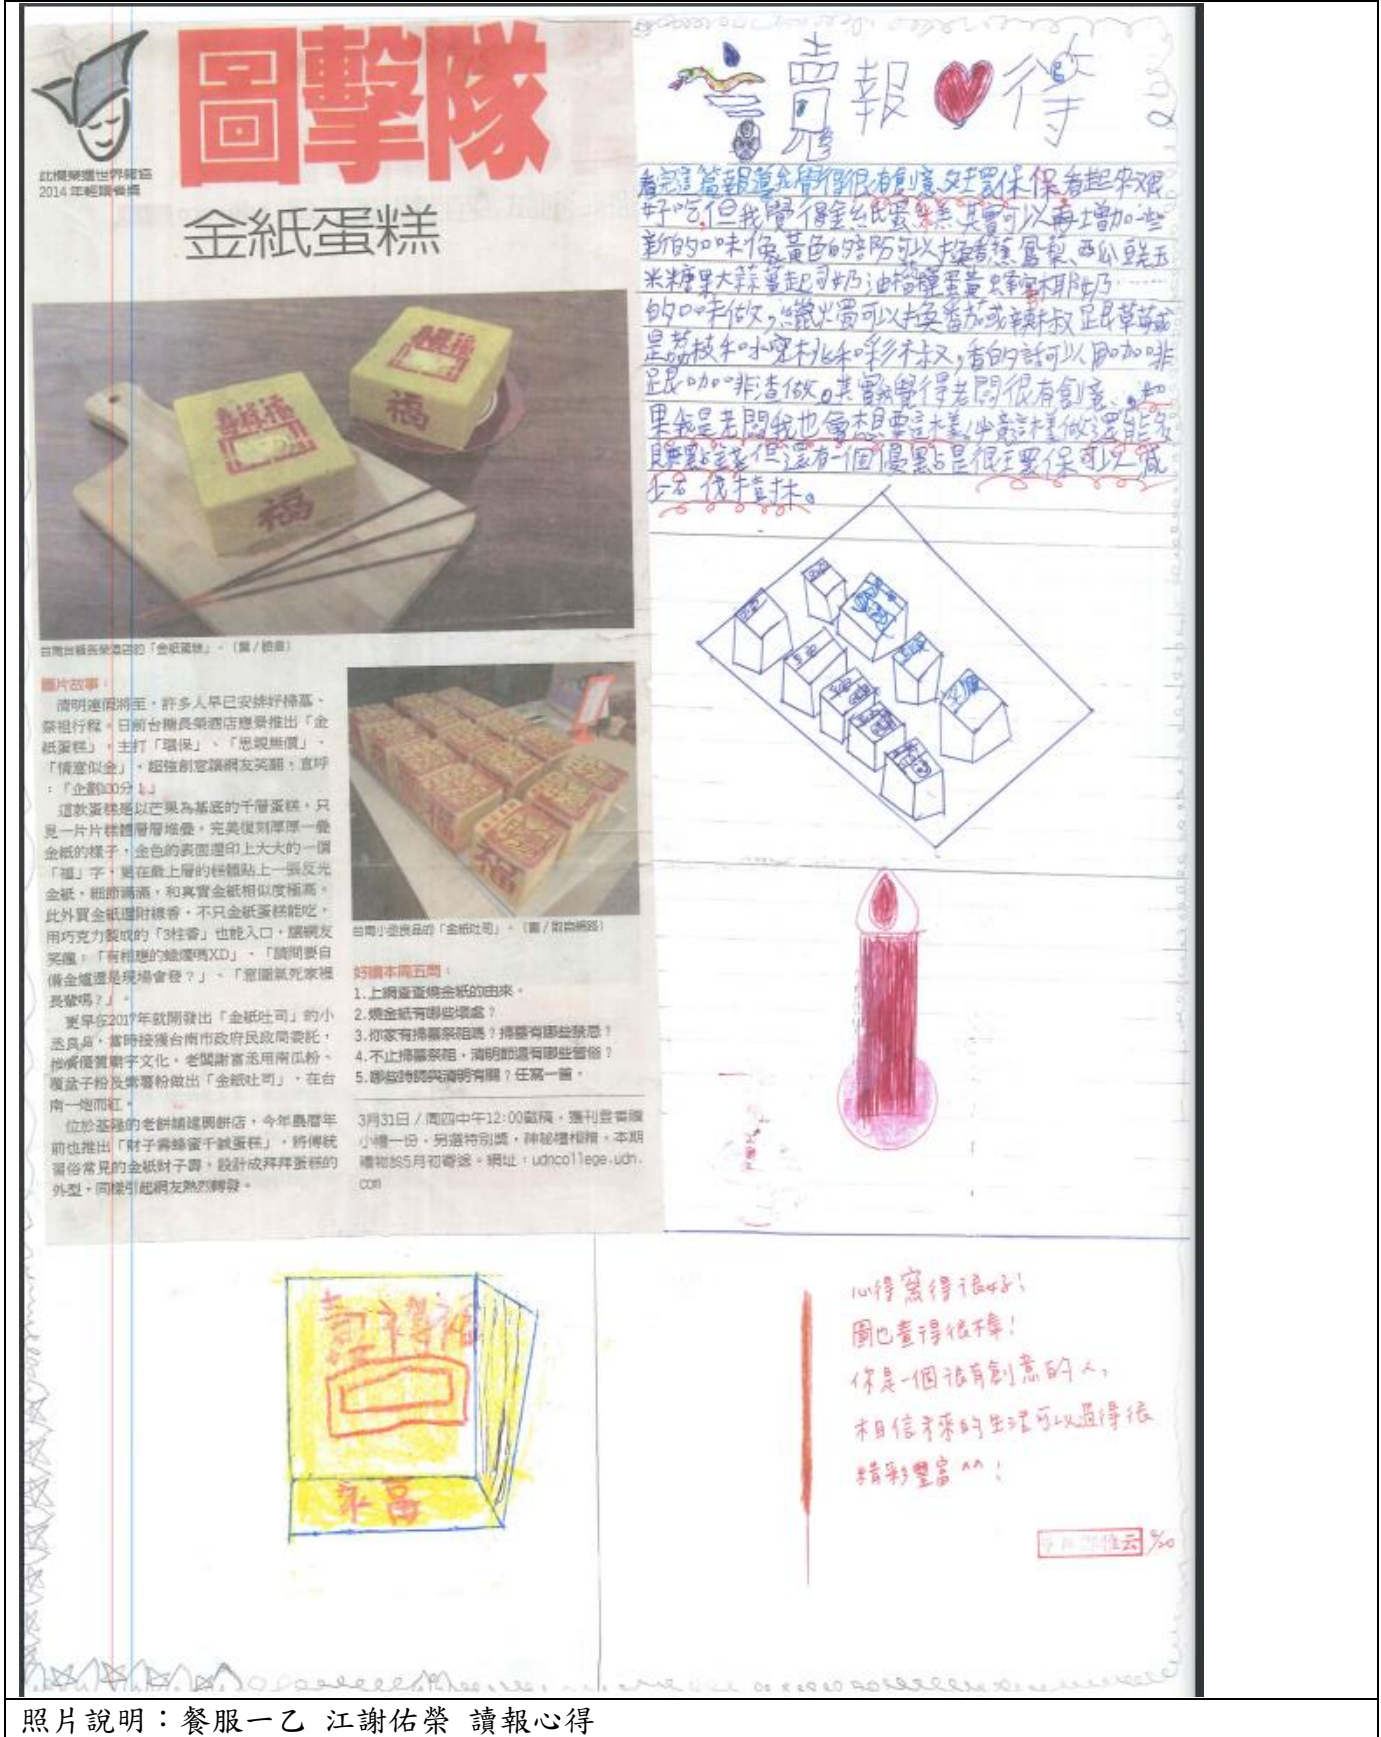 圖擊隊
此欄榮獲世界報協
2014年輕讀者獎
金紙蛋糕
台南台糖長榮酒店的「金紙蛋糕」。(圖/臉書)
圖片故事:
清明連假將至,許多人早已安排好掃墓、
祭祖行程。日前台糖長榮酒店應景推出「金
紙蛋糕」,主打「環保」、「思親無價」、
「情意似金」,超強創意讓網友笑翻,直呼
:「企劃100分!」
這款蛋糕是以芒果為基底的千層蛋糕,只
見一片片糕體層層堆疊,完美復刻厚厚一疊
金紙的樣子,金色的表面還印上大大的一個
「福」字,更在最上層的糕體貼上一張反光
金紙,細節滿滿,和真實金紙相似度極高。
此外買金紙還附線香,不只金紙蛋糕能吃,
用巧克力製成的「3柱香」也能入口,讓網友
笑瘋:「有相應的蠟燭嗎XD」、「請問要自
備金爐還是現場會發?」、「意圖氣死家裡
長輩嗎?」。
更早在2017年就開發出「金紙吐司」的小
丞良品,當時接獲台南市政府民政局委託,
推廣優質廟宇文化。老闆謝富丞用南瓜粉、
覆盆子粉及紫薯粉做出「金紙吐司」,在台
南一炮而紅。
位於基隆的老餅舖建興餅店,今年農曆年
前也推出「財子壽蜂蜜千鹹蛋糕」,將傳統
習俗常見的金紙財子壽,設計成拜拜蛋糕的
外型,同樣引起網友熱烈轉發。
台南小丞良品的「金紙吐司」。(圖/取自網路)
好讀本周五問:
1.上網查查燒金紙的由來。
2.燒金紙有哪些壞處?
3.你家有掃墓祭祖嗎?掃墓有哪些禁忌?
4.不止掃墓祭祖,清明節還有哪些習俗?
5.哪些詩詞與清明有關?任寫一首。
3月31日/周四中午12:00截稿,獲刊登者贈
小禮一份,另選特別獎,神秘禮相贈。本期
禮物於5月初寄送。網址:udncollege.udn.
com
讀報 得
看完這篇報導我覺得很有創意又環保 保看起來又很
好吃,但我覺得金紙蛋糕其實可以再增加一些
新的口味像黃色的部份可以換香蕉鳳梨、西瓜 玉
米糖果大蒜薑起司奶油榴槤蛋黃蜂蜜椰奶……
的口味做,蠟燭可以換番茄或辣椒 跟草莓或
是荔枝和水蜜桃和彩椒,香的話可以用咖啡
跟咖啡渣做。其實我覺得老闆很有創意、如
果我是老闆我也會想要這樣,畢竟這樣做還能多
賺點錢但還有一個優點是很環保可以減
少 砍伐樹木。
壽祿福
福
心得寫得很好!
圖也畫得很棒!
你是一個很有創意的人,
相信未來的生活可以過得很
精彩豐富^^!
照片說明:餐服一乙 江謝佑榮 讀報心得